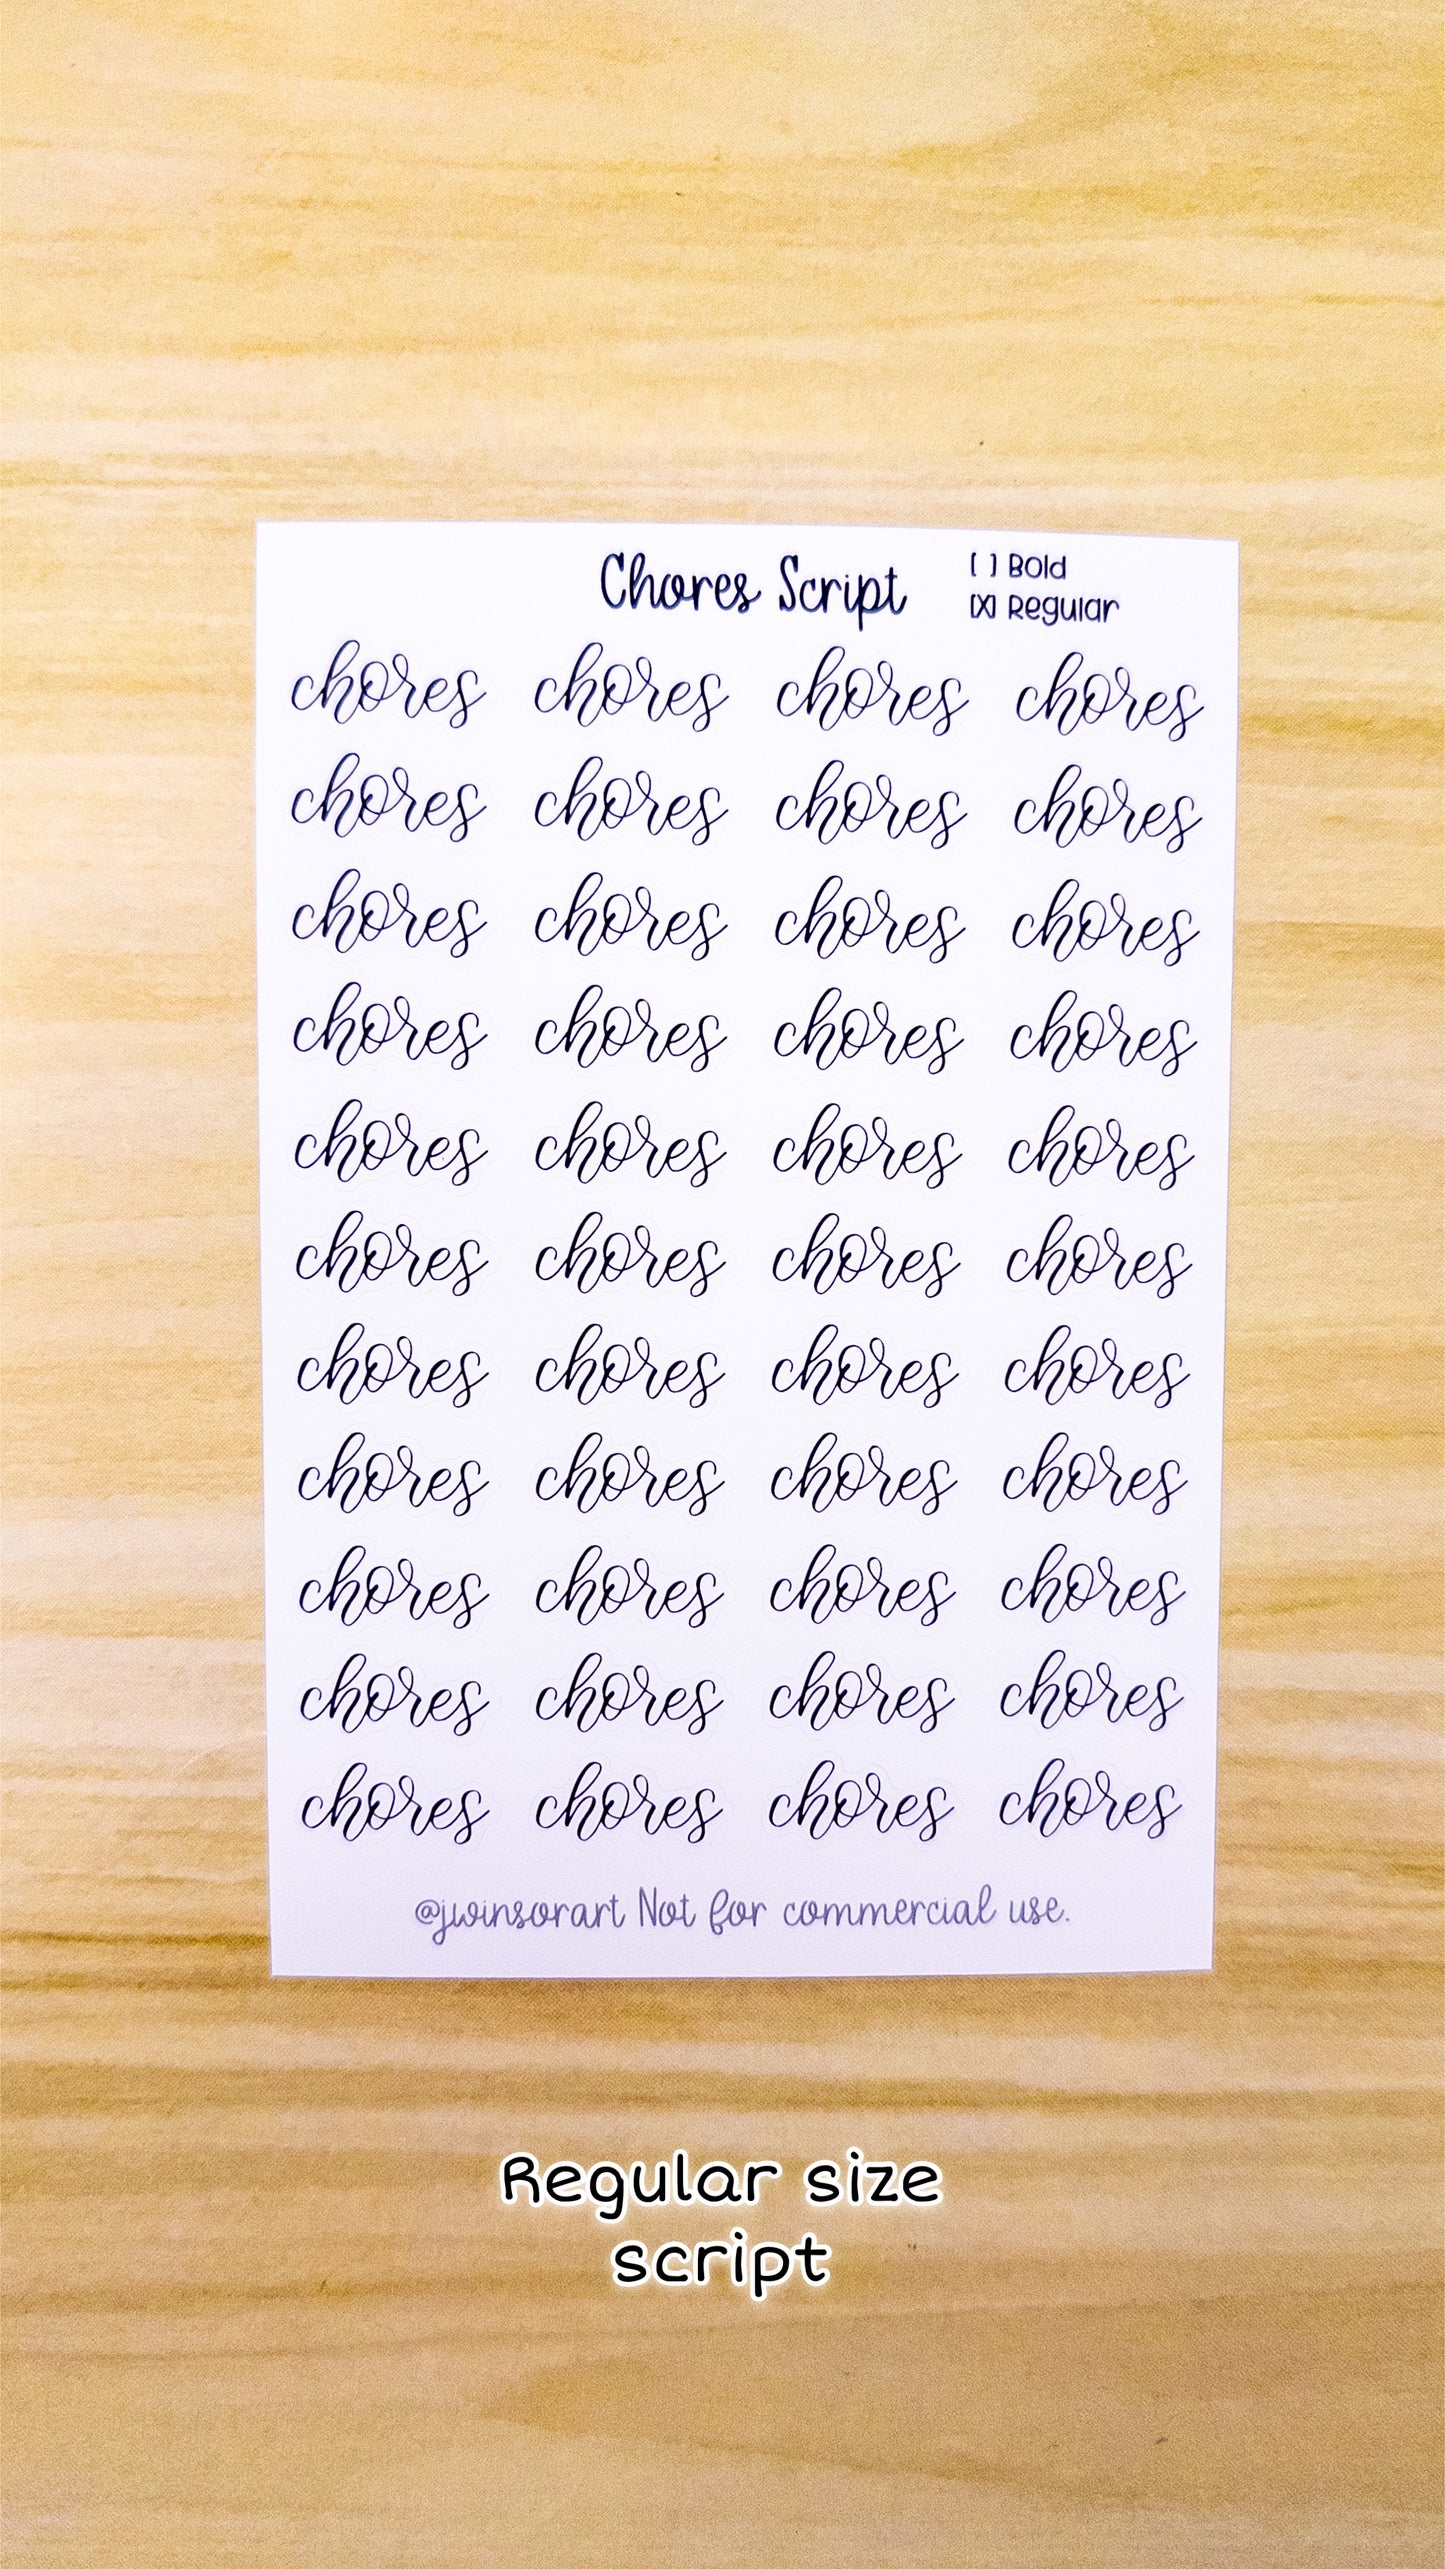 Chores Script
[ ] Bold
[X] Regular
chores chores chores chores
chores chores chores chores
chores chores chores chores
chores chores chores chores
chores chores chores chores
chores chores chores chores
chores chores chores chores
chores chores chores chores
chores chores chores chores
chores chores chores chores
chores chores chores chores
@jwinsorart Not for commercial use.
Regular size
script